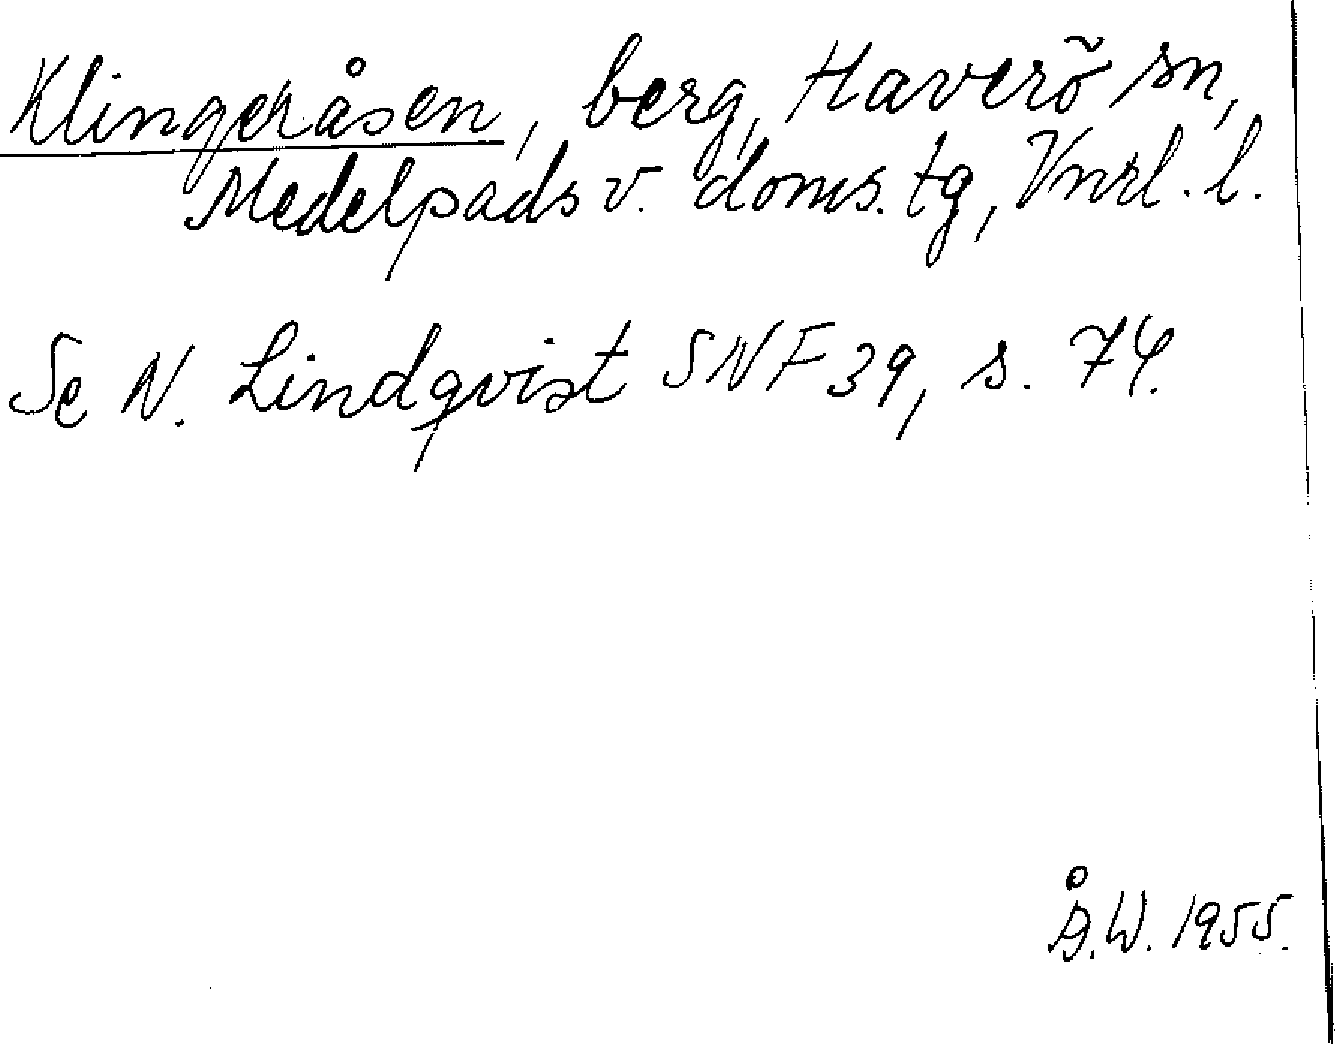 Klingeråsen, berg, Haverö sn,
Medelpads v. doms. tg, Vnrl. l.
Se N. Lindqvist SNF 39, s. 74.
Å.W. 1955.